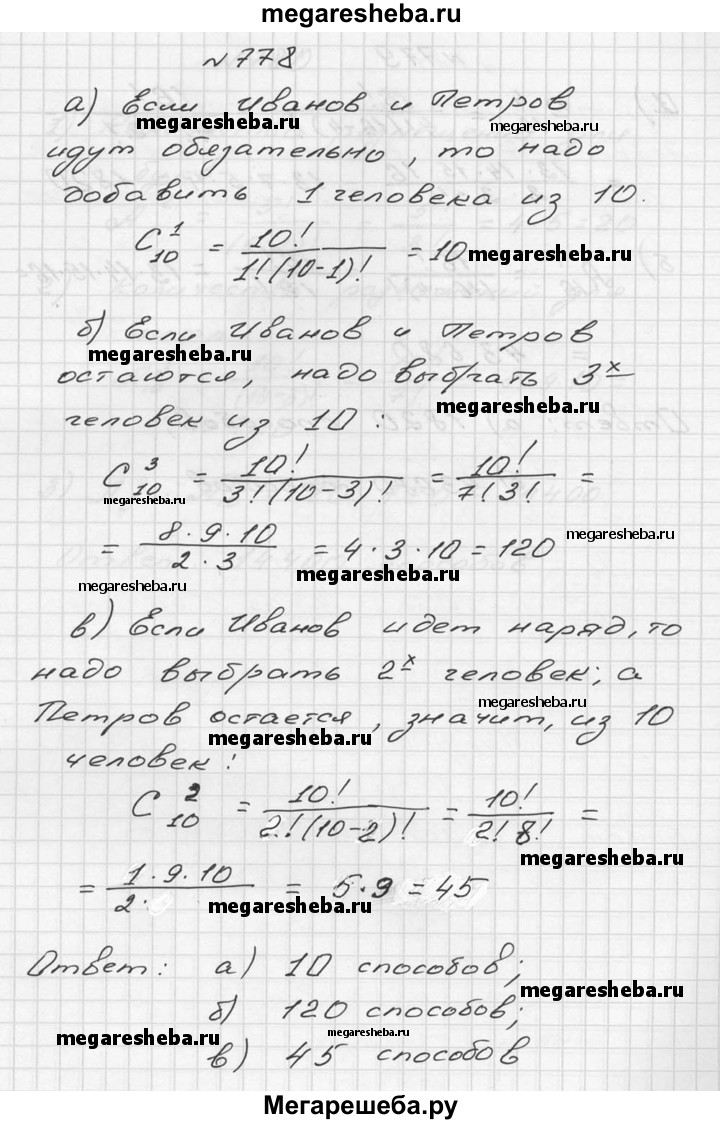 megaresheba.ru
№778
а) Если Иванов и Петров
megaresheba.ru megaresheba.ru
идут обязательно, то надо
добавить 1 человека из 10.
C₁₀¹ = 10! / 1!(10-1)! = 10 megaresheba.ru
б) Если Иванов и Петров
megaresheba.ru
остаются, надо выбрать 3х
megaresheba.ru
человек из 10:
C₁₀³ = 10! / 3!(10-3)! = 10! / 7!3! =
megaresheba.ru
megaresheba.ru
= 8·9·10 / 2·3 = 4·3·10 = 120
megaresheba.ru megaresheba.ru
в) Если Иванов идет наряд, то
надо выбрать 2х человек; а
megaresheba.ru
Петров остается, значит, из 10
megaresheba.ru
человек:
C₁₀² = 10! / 2!(10-2)! = 10! / 2!8! =
megaresheba.ru
= 1·9·10 / 2· = 5·9 = 45
megaresheba.ru
Ответ: а) 10 способов;
megaresheba.ru
б) 120 способов;
megaresheba.ru megaresheba.ru
в) 45 способов
Мегарешеба.ру